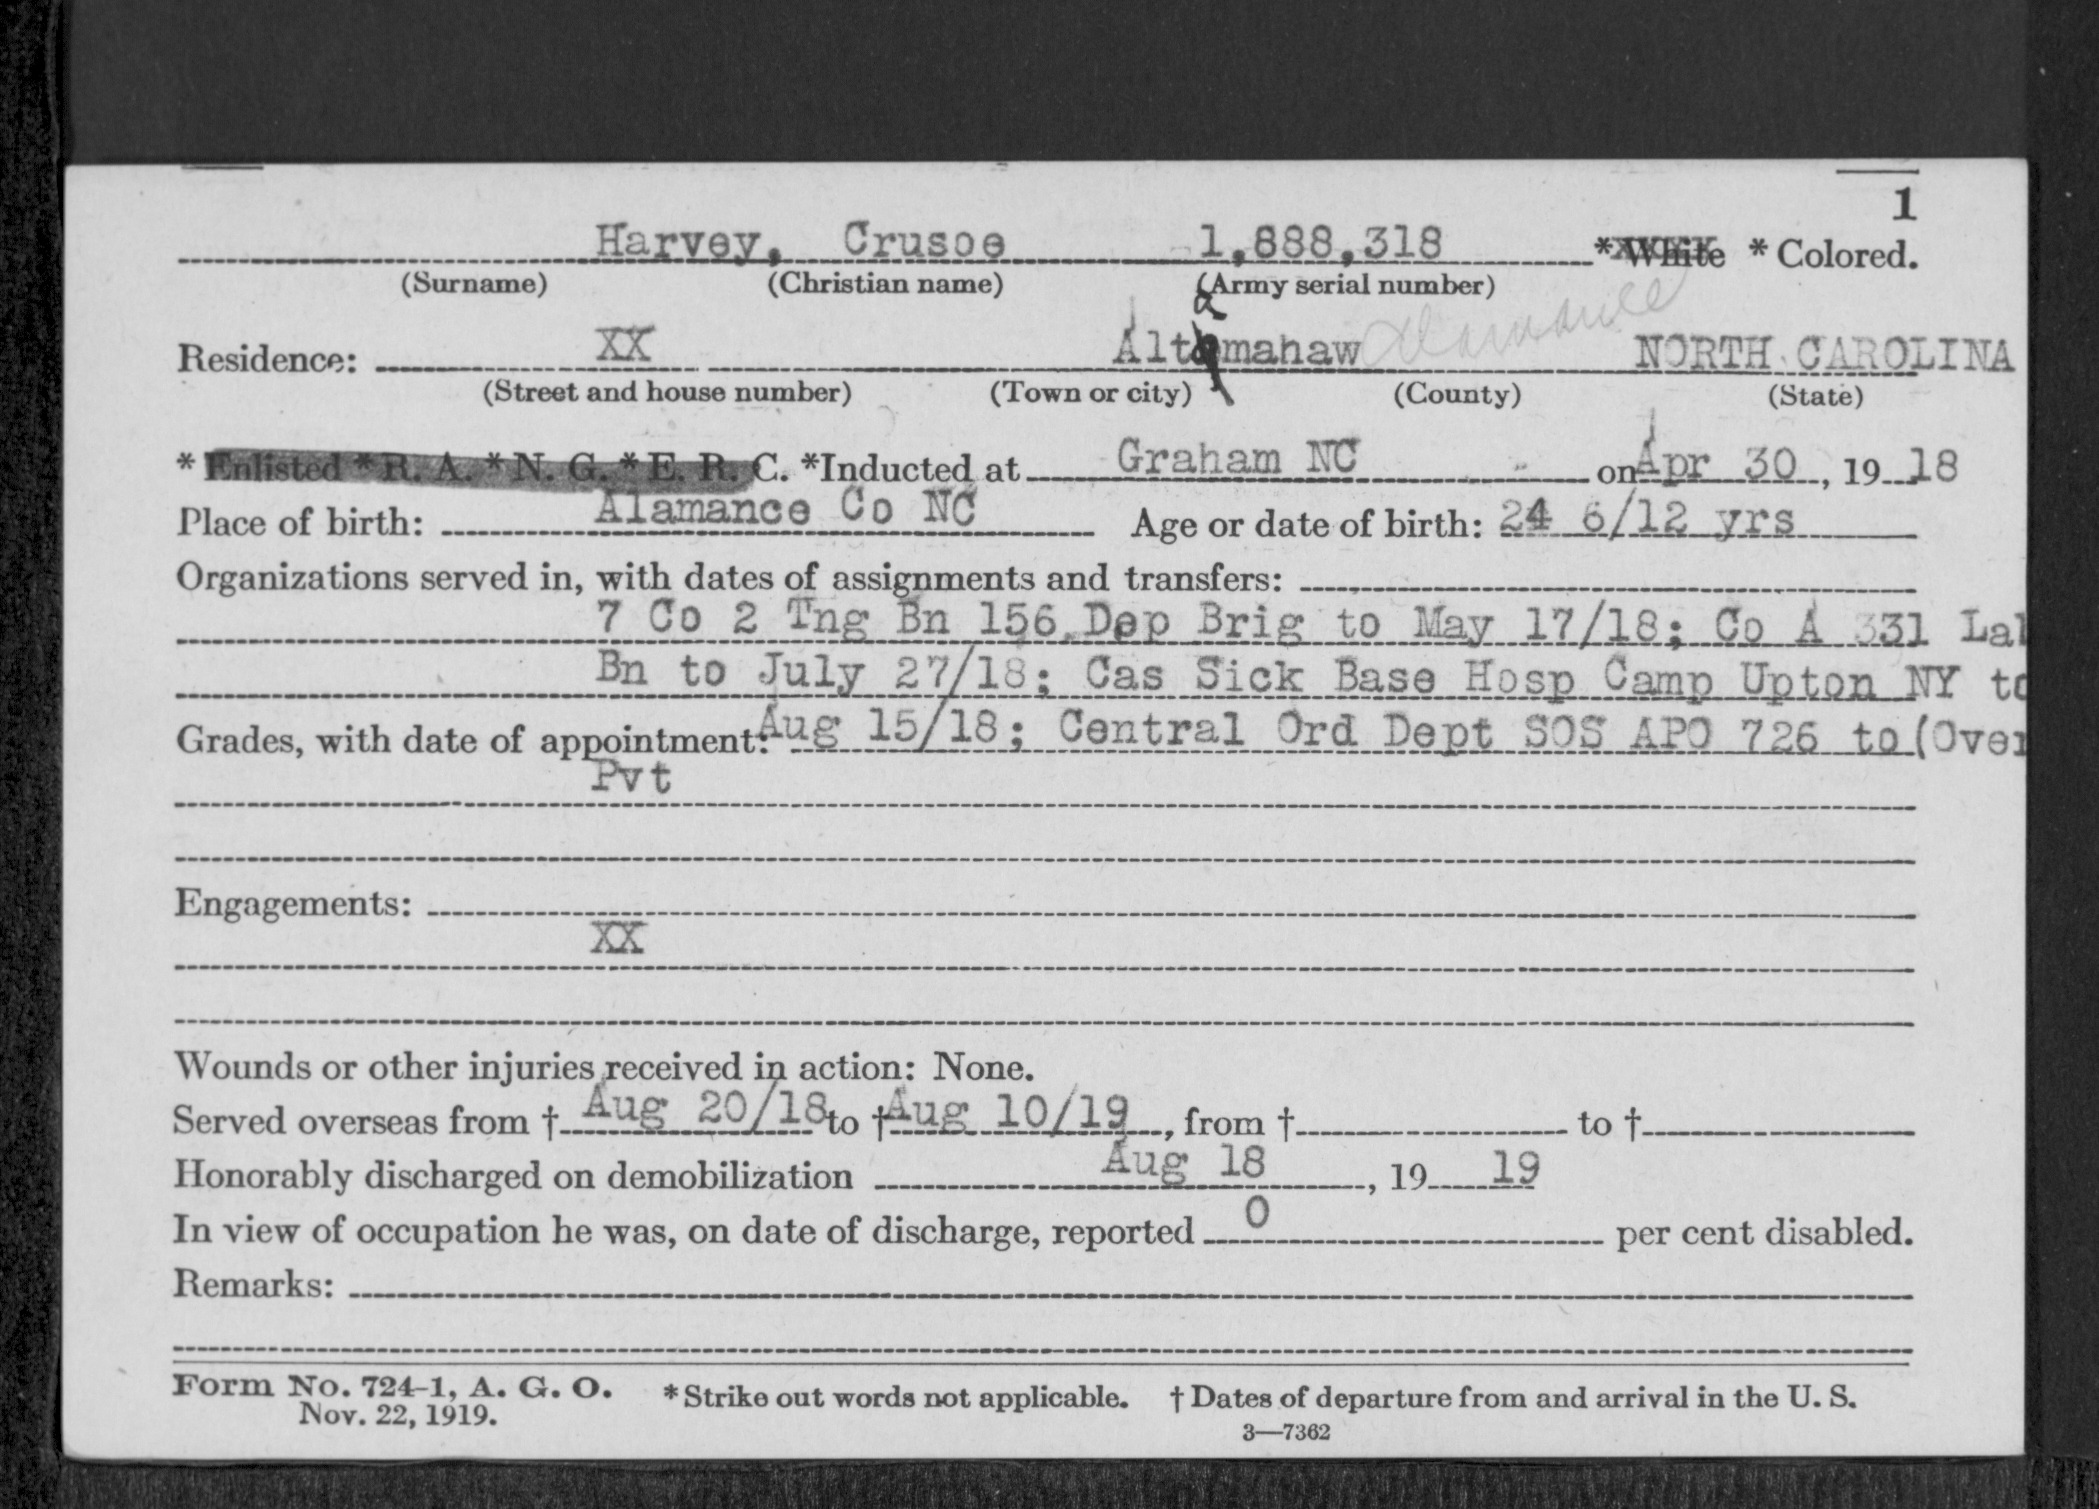 1
Harvey, Crusoe 1,888,318 *White * Colored.
(Surname) (Christian name) (Army serial number)
Residence: XX Altamahaw Alamance NORTH CAROLINA
(Street and house number) (Town or city) (County) (State)
* Enlisted * R. A. * N. G. * E. R. C. *Inducted at Graham NC on Apr 30, 19 18
Place of birth: Alamance Co NC Age or date of birth: 24 6/12 yrs
Organizations served in, with dates of assignments and transfers:
7 Co 2 Tng Bn 156 Dep Brig to May 17/18; Co A 331 Lab
Bn to July 27/18; Cas Sick Base Hosp Camp Upton NY to
Grades, with date of appointment: Aug 15/18; Central Ord Dept SOS APO 726 to (Over
Pvt
Engagements:
XX
Wounds or other injuries received in action: None.
Served overseas from † Aug 20/18 to † Aug 10/19, from † to †
Honorably discharged on demobilization Aug 18, 19 19
In view of occupation he was, on date of discharge, reported 0 per cent disabled.
Remarks:
Form No. 724-1, A. G. O. * Strike out words not applicable. † Dates of departure from and arrival in the U. S.
Nov. 22, 1919.
3—7362